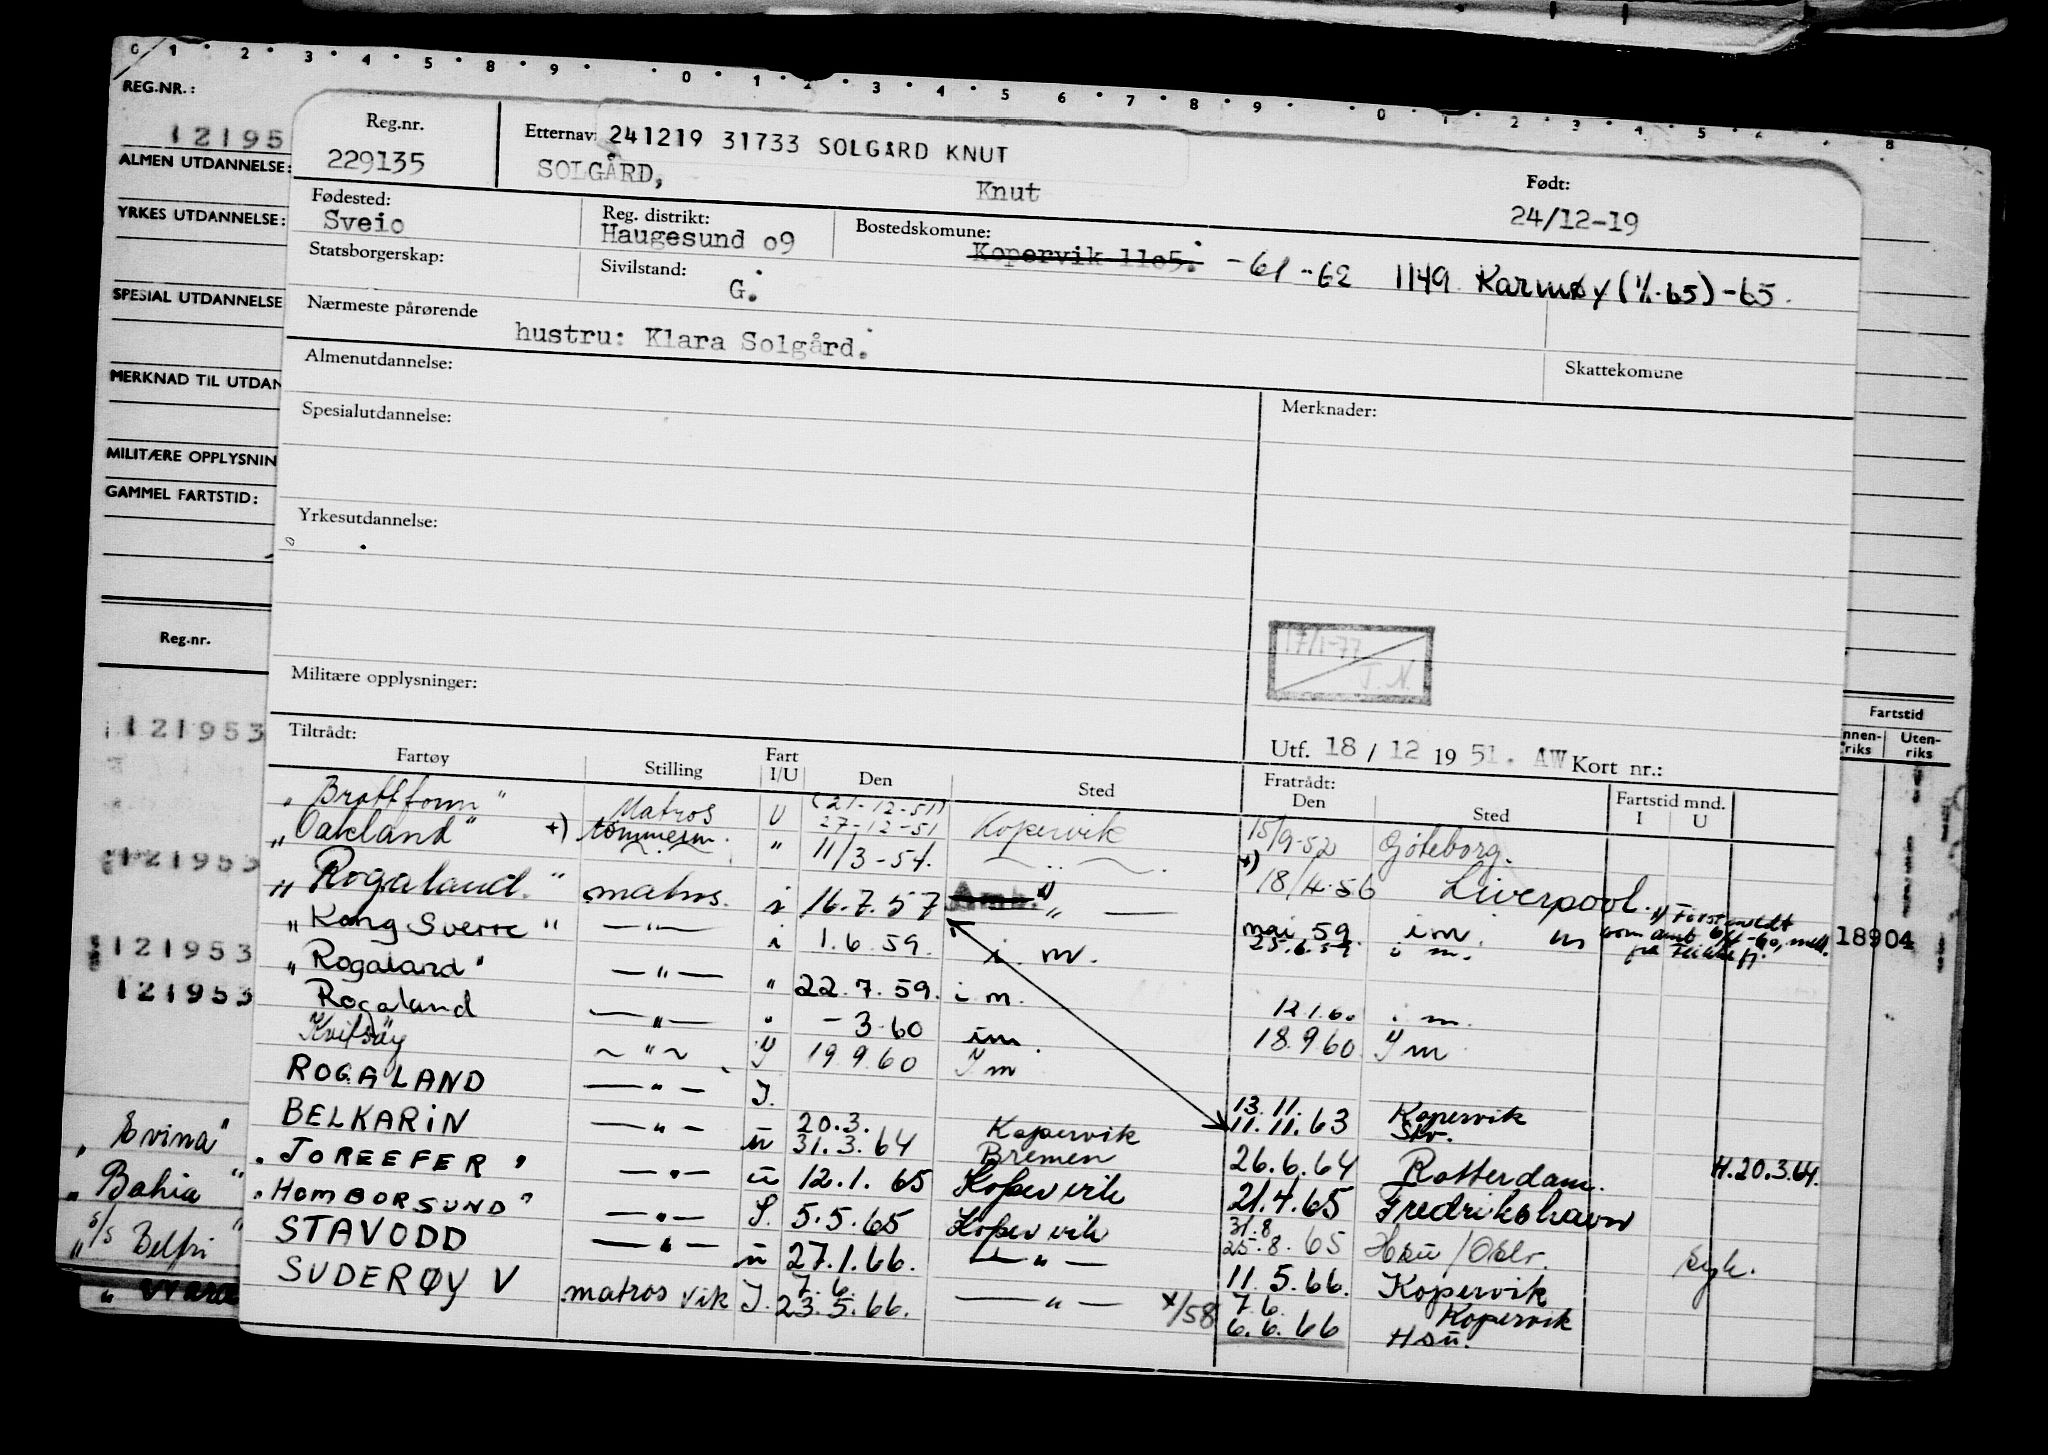 0 1 2 3 4 5 8 9 0 1 2 3 4 5 6 7 8 9 0 1 2 3 4 5 8
REG.NR.:
12195
ALMEN UTDANNELSE:
YRKES UTDANNELSE:
SPESIAL UTDANNELSE
MERKNAD TIL UTDAN
MILITÆRE OPPLYSNIN
GAMMEL FARTSTID:
Reg.nr.
121953
121953
121953
121953
"Evina"
"Bahia"
"s/s Belfri"
Reg.nr.
229135
Etternav: 241219 31733 SOLGARD KNUT
SOLGÅRD, Knut
Født:
24/12-19
Fødested:
Sveio
Reg. distrikt:
Haugesund o9
Bostedskomune:
Kopervik 11o5. -61 -62 1149 Karmøy (1/1-65) -65.
Statsborgerskap:
Sivilstand:
G.
Nærmeste pårørende
hustru: Klara Solgård.
Skattekomune
Almenutdannelse:
Spesialutdannelse:
Merknader:
Yrkesutdannelse:
17/1-77
T.N.
Militære opplysninger:
Utf. 18 / 12 19 51. AW Kort nr.:
Tiltrådt:
Fartøy Stilling Fart I/U Den Sted Fratrådt: Den Sted Fartstid mnd. I U
Fartstid
Innen-riks Uten-riks
"Brattfonn" Matros U (21-12-51) 27-12-51 Kopervik 15/9-52 Göteborg.
"Oakland" *) tømmerm. " 11/3-54. — " — *) 18/4-56 Liverpool.
"Rogaland." matros. i 16.7.57 Amb. 1) — " — mai 59. i m. 1) Først meldt som amb
18904
"Kong Sverre" — " — i 1.6.59. i. m. 25.6.59 i m.
"Rogaland" — " — " 22.7.59. i m. 12.1.60 i m.
Rogaland — " — " -3-60 im. 18.9.60 I m
Kvitsøy ~ " ~ I 19.9.60 I m
ROGALAND — " — I. 13.11. 11.11.63 Kopervik Skv.
BELKARIN — " — u 20.3. 31.3.64 Kopervik Bremen 26.6.64 Rotterdam. H.20.3.64.
"JOREEFER" — " — u 12.1.65 Kopervik 21.4.65 Fredrikshavn
"HOMBORSUND" — " — I. 5.5.65 Kopervik 31.8 25.8.65 Hsu/Oslo. syk.
STAVODD — " — u 27.1.66. — " — 11.5.66. Kopervik
SUDERØY V matros vik I. 7.6. 23.5.66. — " — x/58 7.6. 6.6.66 Kopervik Hsu.